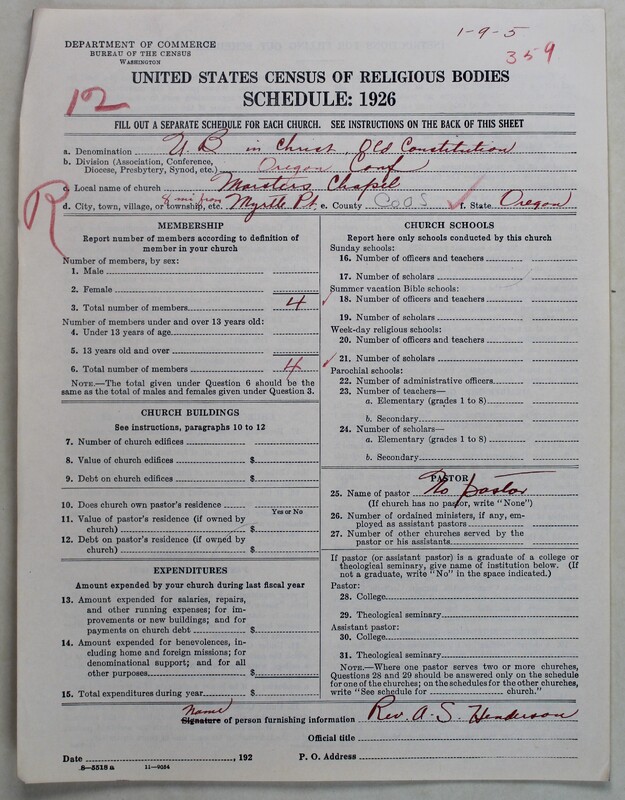 1-9-5
359
DEPARTMENT OF COMMERCE
BUREAU OF THE CENSUS
WASHINGTON
UNITED STATES CENSUS OF RELIGIOUS BODIES
SCHEDULE: 1926
12
FILL OUT A SEPARATE SCHEDULE FOR EACH CHURCH. SEE INSTRUCTIONS ON THE BACK OF THIS SHEET
a. Denomination U. B. in Christ, Old Constitution
b. Division (Association, Conference, Diocese, Presbytery, Synod, etc.) Oregon Conf
c. Local name of church Marsters Chapel
d. City, town, village, or township, etc. 8 mi from Myrtle Pt. e. County COOS f. State Oregon
R
MEMBERSHIP
Report number of members according to definition of
member in your church
Number of members, by sex:
1. Male
2. Female
3. Total number of members 4
Number of members under and over 13 years old:
4. Under 13 years of age
5. 13 years old and over
6. Total number of members 4
NOTE.—The total given under Question 6 should be
same as the total of males and females given under Question 3.
CHURCH BUILDINGS
See instructions, paragraphs 10 to 12
7. Number of church edifices
8. Value of church edifices $
9. Debt on church edifices $
10. Does church own pastor's residence
Yes or No
11. Value of pastor's residence (if owned by
church) $
12. Debt on pastor's residence (if owned by
church) $
EXPENDITURES
Amount expended by your church during last fiscal year
13. Amount expended for salaries, repairs,
and other running expenses; for im-
provements or new buildings; and for
payments on church debt $
14. Amount expended for benevolences, in-
cluding home and foreign missions; for
denominational support; and for all
other purposes $
15. Total expenditures during year $
CHURCH SCHOOLS
Report here only schools conducted by this church
Sunday schools:
16. Number of officers and teachers
17. Number of scholars
Summer vacation Bible schools:
18. Number of officers and teachers
19. Number of scholars
Week-day religious schools:
20. Number of officers and teachers
21. Number of scholars
Parochial schools:
22. Number of administrative officers
23. Number of teachers—
a. Elementary (grades 1 to 8)
b. Secondary
24. Number of scholars—
a. Elementary (grades 1 to 8)
b. Secondary
PASTOR
25. Name of pastor No pastor
(If church has no pastor, write "None")
26. Number of ordained ministers, if any, em-
ployed as assistant pastors
27. Number of other churches served by the
pastor or his assistants
If pastor (or assistant pastor) is a graduate of a college or
theological seminary, give name of institution below. (If
not a graduate, write "No" in the space indicated.)
Pastor:
28. College
29. Theological seminary
Assistant pastor:
30. College
31. Theological seminary
NOTE.—Where one pastor serves two or more churches,
Questions 28 and 29 should be answered only on the schedule
for one of the churches; on the schedules for the other churches,
write "See schedule for church."
Name
Signature of person furnishing information Rev. A. S. Henderson
Official title
Date , 192 P. O. Address
8—5518a 11—9054